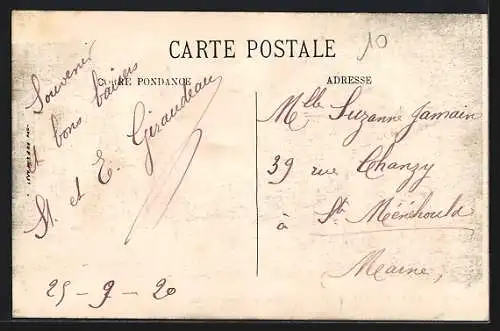 CARTE POSTALE
10
CORRE PONDANCE
ADRESSE
Souvenir
et bons baisers
St. et E. Giraudeau
25-9-20
Mlle Suzanne Jamain
39 rue Chanzy
à Ste Ménéhould
Marne,